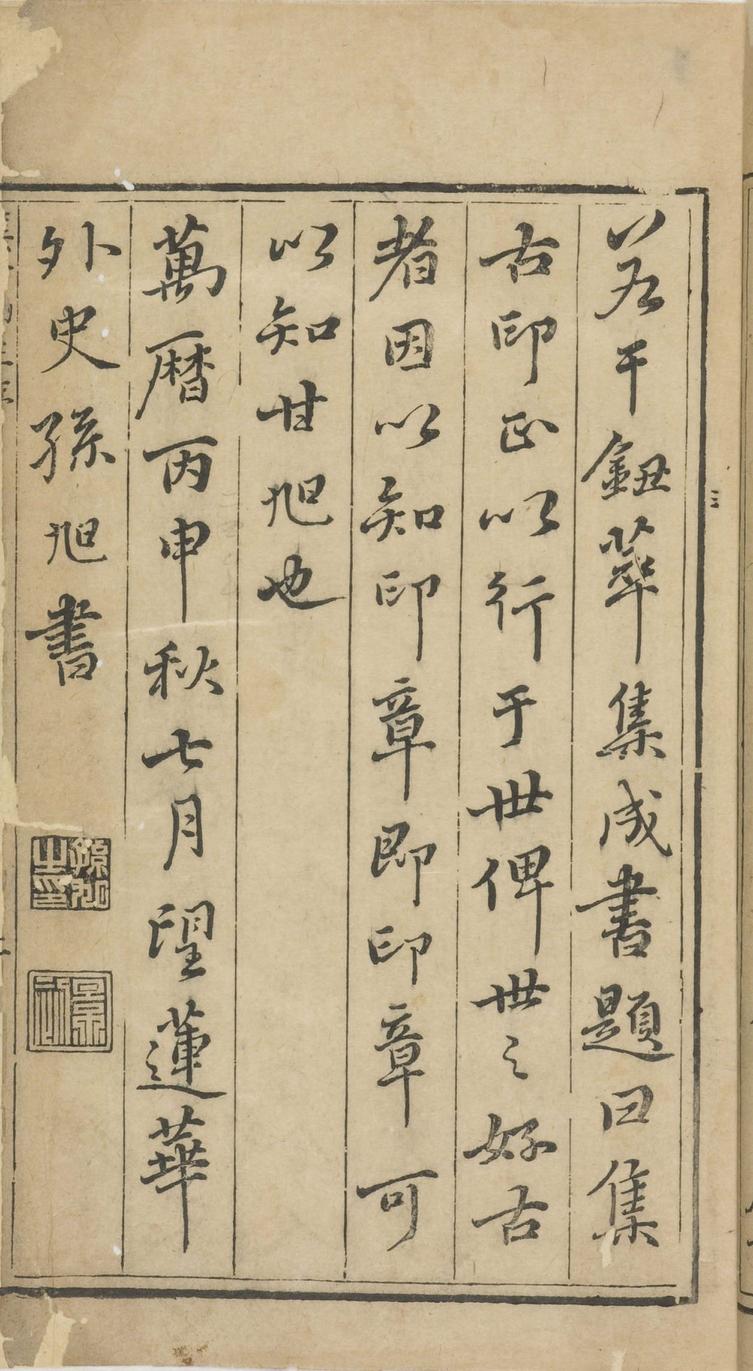 若干鈕萃集成書題曰集
古印正以行于世俾世之好古
者因以知印章即印章可
以知甘旭也
萬曆丙申秋七月望蓮華
外史孫旭書